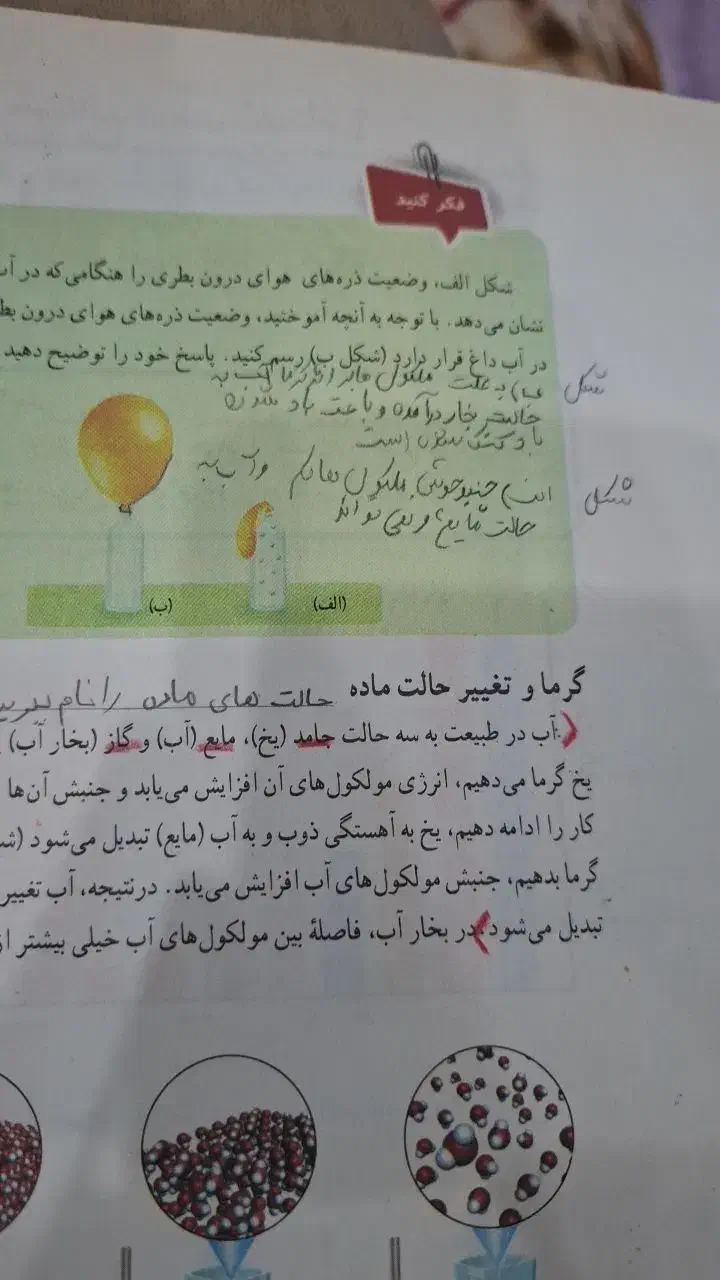 فکر کنید
شکل الف، وضعیت ذره‌های هوای درون بطری را هنگامی‌که در آب
نشان می‌دهد. با توجه به آنچه آموختید، وضعیت ذره‌های هوای درون بط
در آب داغ قرار دارد (شکل ب) رسم کنید. پاسخ خود را توضیح دهید
شکل ب) به علت
حالت بخار درآمده و باعث باد
بادکنک است
شکل الف) و آب به
حالت مایع و نمی تواند
(الف)
(ب)
گرما و تغییر حالت ماده حالت های ماده را نام ببرید
آب در طبیعت به سه حالت جامد (یخ)، مایع (آب) و گاز (بخار آب)
یخ گرما می‌دهیم، انرژی مولکول‌های آن افزایش می‌یابد و جنبش آن‌ها
کار را ادامه دهیم، یخ به آهستگی ذوب و به آب (مایع) تبدیل می‌شود (ش
گرما بدهیم، جنبش مولکول‌های آب افزایش می‌یابد. درنتیجه، آب تغییر
تبدیل می‌شود. در بخار آب، فاصلهٔ بین مولکول‌های آب خیلی بیشتر از